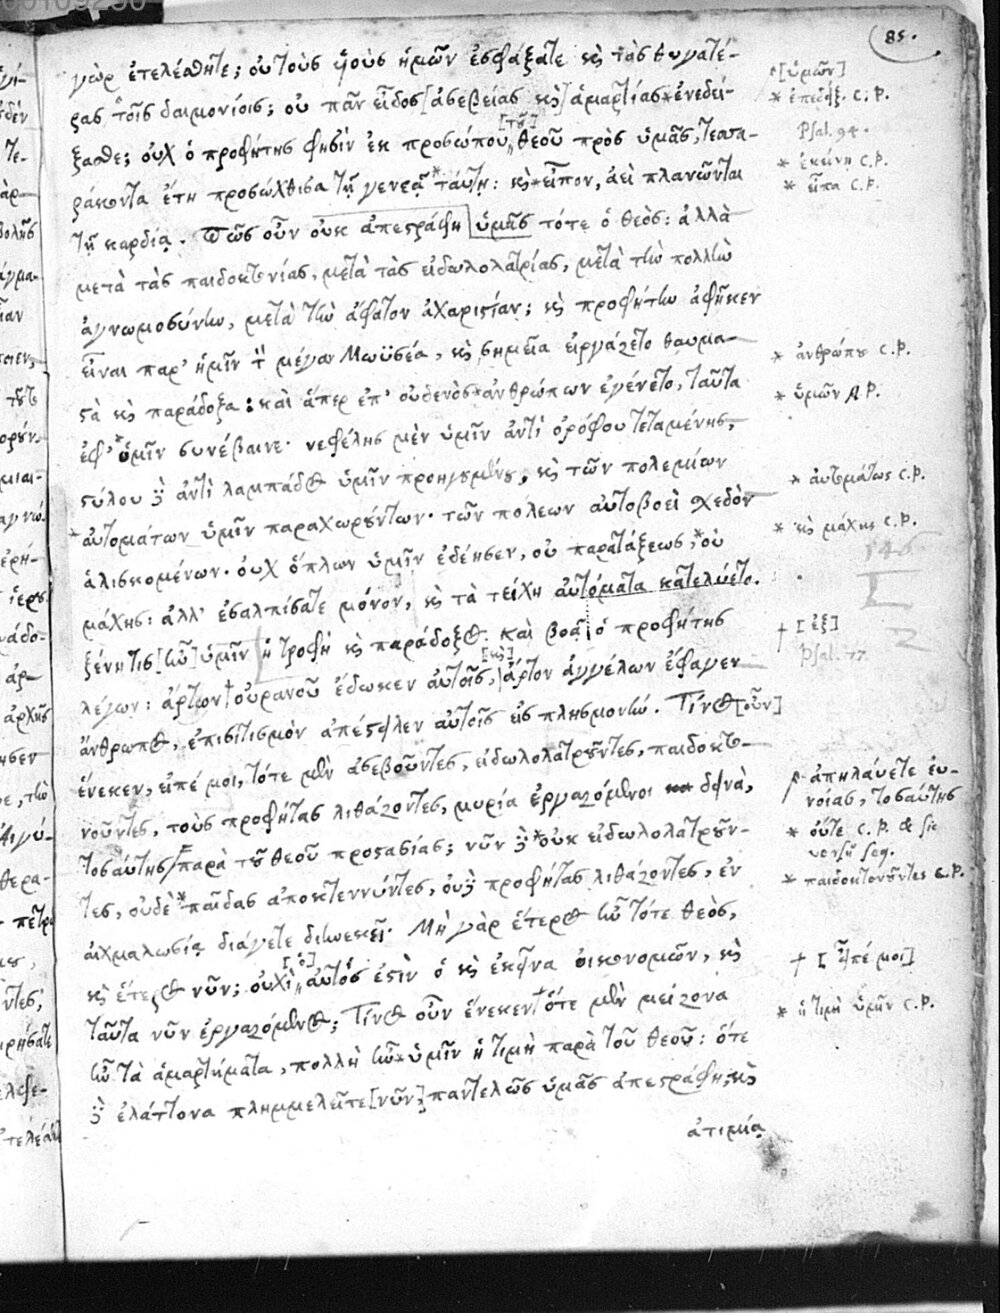 85.
γὰρ ἐτελέσθητε; οὐ τοὺς υἱοὺς ὑμῶν ἐσφάξατε καὶ τὰς θυγατέ-
ρας τοῖς δαιμονίοις; οὐ πᾶν εἶδος [ἀσεβείας καὶ] ἁμαρτίας * ἐνεδεί-
ξασθε; οὐχ ὁ προφήτης φησὶν ἐκ προσώπου [τοῦ] θεοῦ πρὸς ὑμᾶς, τεσσα-
ράκοντα ἔτη προσώχθισα τῇ γενεᾷ * ταύτῃ: καὶ * εἶπον, ἀεὶ πλανῶνται
τῇ καρδίᾳ. Πῶς οὖν οὐκ ἀπεστράφη ὑμᾶς τότε ὁ θεὸς: ἀλλὰ
μετὰ τὰς παιδοκτονίας, μετὰ τὰς εἰδωλολατρίας, μετὰ τὴν πολλὴν
ἀγνωμοσύνην, μετὰ τὴν ἄφατον ἀχαριστίαν; καὶ προφήτην ἀφῆκεν
εἶναι παρ' ὑμῖν τὸν μέγαν Μωϋσέα, καὶ σημεῖα εἰργάζετο θαυμα-
στὰ καὶ παράδοξα: καὶ ἅπερ ἐπ' οὐδενὸς * ἀνθρώπων ἐγένετο, ταῦτα
ἐφ' * ὑμῖν συνέβαινε· νεφέλης μὲν ὑμῖν ἀντὶ ὀρόφου τεταμένης,
στύλου δὲ ἀντὶ λαμπάδος ὑμῖν προηγουμένου, καὶ τῶν πολεμίων
* αὐτομάτων ὑμῖν παραχωρούντων· τῶν πόλεων αὐτοβοεὶ σχεδὸν
ἁλισκομένων. οὐχ ὅπλων ὑμῖν ἐδέησεν, οὐ παρατάξεως, * οὐ
μάχης: ἀλλ' ἐσαλπίσατε μόνον, καὶ τὰ τείχη αὐτόματα κατελύετο.
ξένη τις [ἦν] ὑμῖν ἡ τροφὴ καὶ παράδοξος. καὶ βοᾷ ὁ προφήτης
λέγων: ἄρτον † οὐρανοῦ ἔδωκεν αὐτοῖς, [καὶ] ἄρτον ἀγγέλων ἔφαγεν
ἄνθρωπος, ἐπισιτισμὸν ἀπέστειλεν αὐτοῖς εἰς πλησμονήν. Τίνος [οὖν]
ἕνεκεν, εἰπέ μοι, τότε μὲν ἀσεβοῦντες, εἰδωλολατροῦντες, παιδοκτο-
νοῦντες, τοὺς προφήτας λιθάζοντες, μυρία ἐργαζόμενοι δεινὰ,
τοσαύτης παρὰ τοῦ θεοῦ προστασίας; νῦν δὲ * οὐκ εἰδωλολατροῦν-
τες, οὐδὲ * παῖδας ἀποκτεννύντες, οὐδὲ προφήτας λιθάζοντες, ἐν
αἰχμαλωσίᾳ διάγετε διηνεκεῖ· Μὴ γὰρ ἕτερος ἦν τότε θεὸς,
καὶ ἕτερος νῦν; οὐχὶ [ὁ] αὐτός ἐστὶν ὁ καὶ ἐκεῖνα οἰκονομῶν, καὶ
ταῦτα νῦν ἐργαζόμενος; Τίνος οὖν ἕνεκεν † ὅτε μὲν μείζονα
ἦν τὰ ἁμαρτήματα, πολλὴ ἦν * ὑμῖν ἡ τιμὴ παρὰ τοῦ θεοῦ: ὅτε
δὲ ἐλάττονα πλημμελεῖτε [νῦν,] παντελῶς ὑμᾶς ἀπεστράφη, καὶ
ἀτιμίᾳ
[ὑμῶν]
* ἐπεδείξ. C. P.
Psal. 94.
* ἐκείνῃ C.P.
* εἶπα C.P.
* ἀνθρώπου C.P.
* ὑμῶν A.P.
* αὐτομάτως C.P.
* καὶ μάχης C.P.
146
2
† [ἐξ]
Psal. 77.
ἀπηλαύετε εὐ-
νοίας, τοσαύτης
* οὔτε C. P. & sic
versu seq.
* παιδοκτονοῦντες C.P.
† [εἰπέ μοι]
* ἡ τιμὴ ὑμῖν C.P.